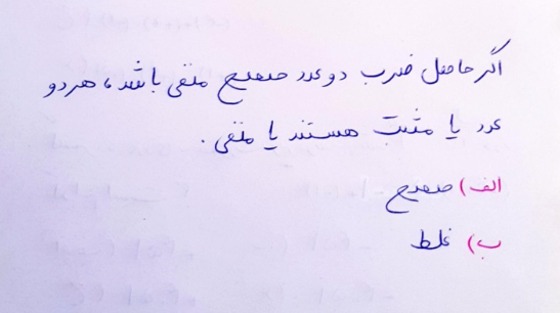 اگر حاصل ضرب دو عدد صحیح منفی باشد، هر دو
عدد یا مثبت هستند یا منفی.
الف) صحیح
ب) غلط